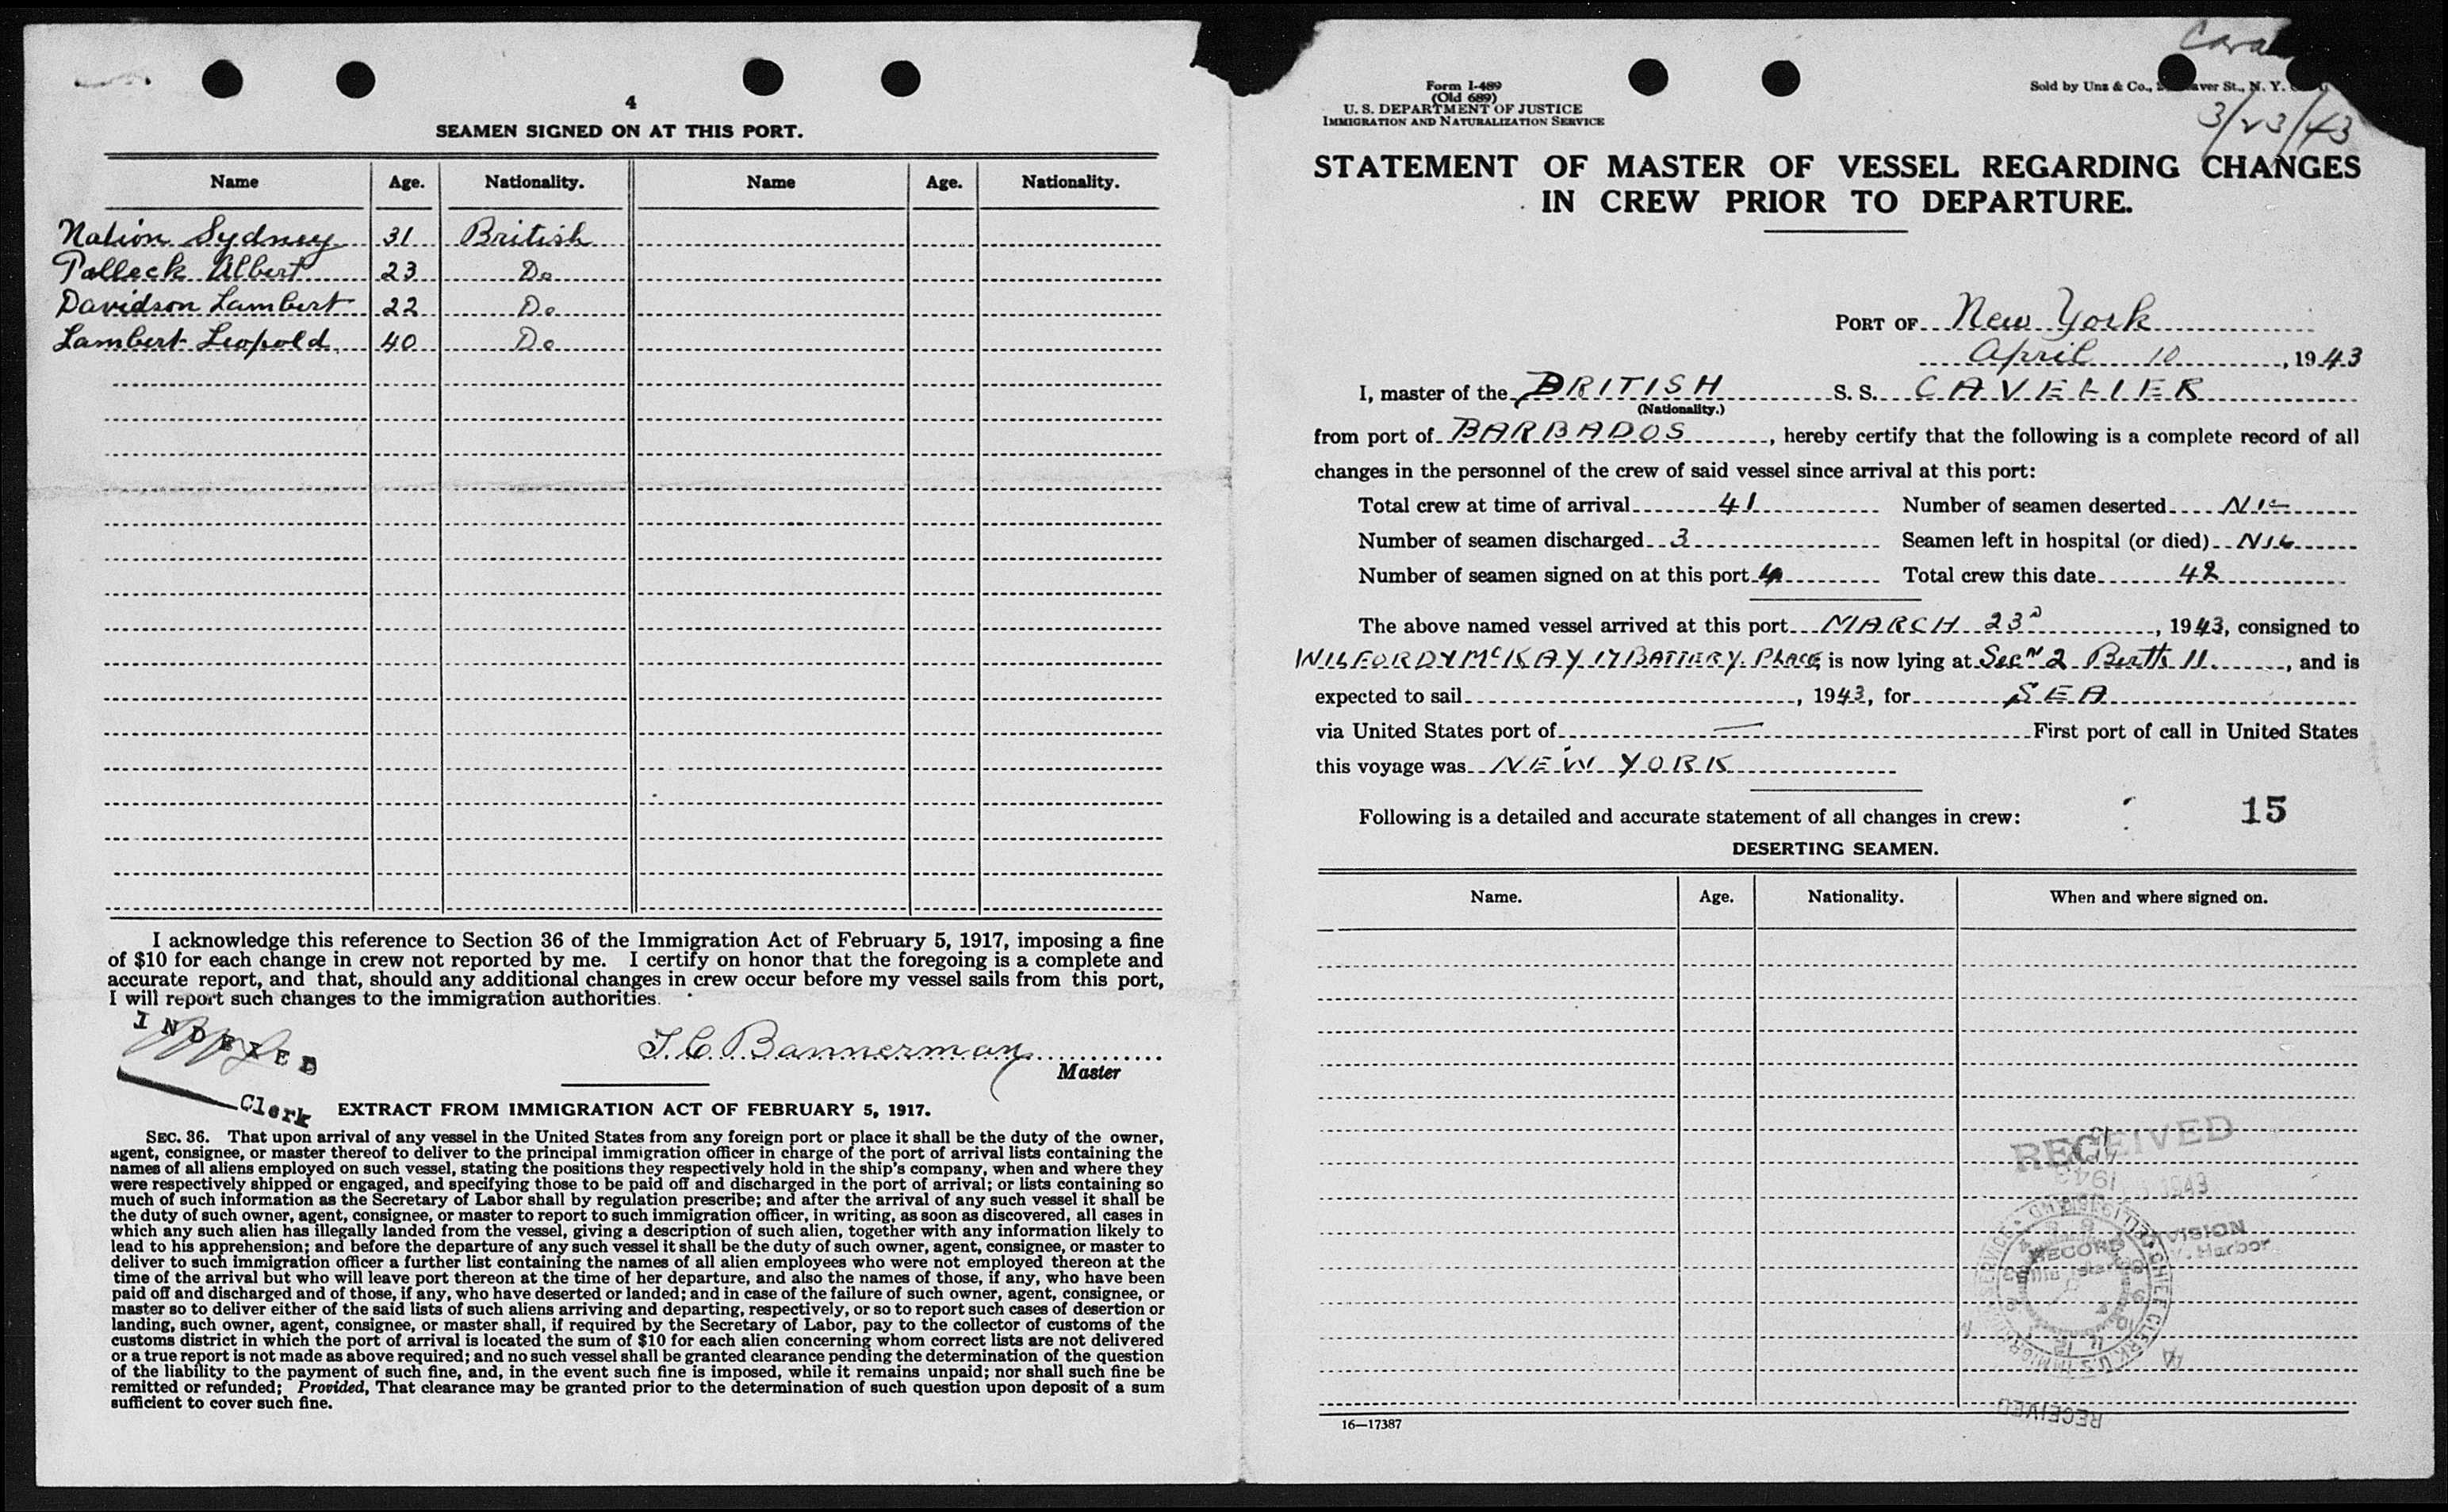 4
SEAMEN SIGNED ON AT THIS PORT.
Name Age. Nationality. Name Age. Nationality.
Nation Sydney 31 British
Palleck Albert 23 Do
Davidson Lambert 22 Do
Lambert Leopold 40 Do
I acknowledge this reference to Section 36 of the Immigration Act of February 5, 1917, imposing a fine
of $10 for each change in crew not reported by me. I certify on honor that the foregoing is a complete and
accurate report, and that, should any additional changes in crew occur before my vessel sails from this port,
I will report such changes to the immigration authorities.
INDEXED
J. C. Bannerman
Master
Clerk
EXTRACT FROM IMMIGRATION ACT OF FEBRUARY 5, 1917.
SEC. 36. That upon arrival of any vessel in the United States from any foreign port or place it shall be the duty of the owner,
agent, consignee, or master thereof to deliver to the principal immigration officer in charge of the port of arrival lists containing the
names of all aliens employed on such vessel, stating the positions they respectively hold in the ship's company, when and where they
were respectively shipped or engaged, and specifying those to be paid off and discharged in the port of arrival; or lists containing so
much of such information as the Secretary of Labor shall by regulation prescribe; and after the arrival of any such vessel it shall be
the duty of such owner, agent, consignee, or master to report to such immigration officer, in writing, as soon as discovered, all cases in
which any such alien has illegally landed from the vessel, giving a description of such alien, together with any information likely to
lead to his apprehension; and before the departure of any such vessel it shall be the duty of such owner, agent, consignee, or master to
deliver to such immigration officer a further list containing the names of all alien employees who were not employed thereon at the
time of the arrival but who will leave port thereon at the time of her departure, and also the names of those, if any, who have been
paid off and discharged and of those, if any, who have deserted or landed; and in case of the failure of such owner, agent, consignee, or
master so to deliver either of the said lists of such aliens arriving and departing, respectively, or so to report such cases of desertion or
landing, such owner, agent, consignee, or master shall, if required by the Secretary of Labor, pay to the collector of customs of the
customs district in which the port of arrival is located the sum of $10 for each alien concerning whom correct lists are not delivered
or a true report is not made as above required; and no such vessel shall be granted clearance pending the determination of the question
of the liability to the payment of such fine, and, in the event such fine is imposed, while it remains unpaid; nor shall such fine be
remitted or refunded; Provided, That clearance may be granted prior to the determination of such question upon deposit of a sum
sufficient to cover such fine.
Form I-489
(Old 689)
U. S. DEPARTMENT OF JUSTICE
IMMIGRATION AND NATURALIZATION SERVICE
Sold by Unz & Co., St., N. Y.
3/23/43
STATEMENT OF MASTER OF VESSEL REGARDING CHANGES
IN CREW PRIOR TO DEPARTURE.
PORT OF New York
April 10, 1943
I, master of the BRITISH S. S. CAVELIER
(Nationality.)
from port of BARBADOS, hereby certify that the following is a complete record of all
changes in the personnel of the crew of said vessel since arrival at this port:
Total crew at time of arrival 41 Number of seamen deserted NIL
Number of seamen discharged 3 Seamen left in hospital (or died) NIL
Number of seamen signed on at this port 4 Total crew this date 42
The above named vessel arrived at this port MARCH 23D, 1943, consigned to
WILFORD & McKAY 17 BATTERY PLACE, is now lying at Secn 2 Berth 11, and is
expected to sail, 1943, for SEA
via United States port of — First port of call in United States
this voyage was NEW YORK
Following is a detailed and accurate statement of all changes in crew: 15
DESERTING SEAMEN.
Name. Age. Nationality. When and where signed on.
RECEIVED
1943
RECORD DIVISION
Harbor
RECEIVED
16—17387